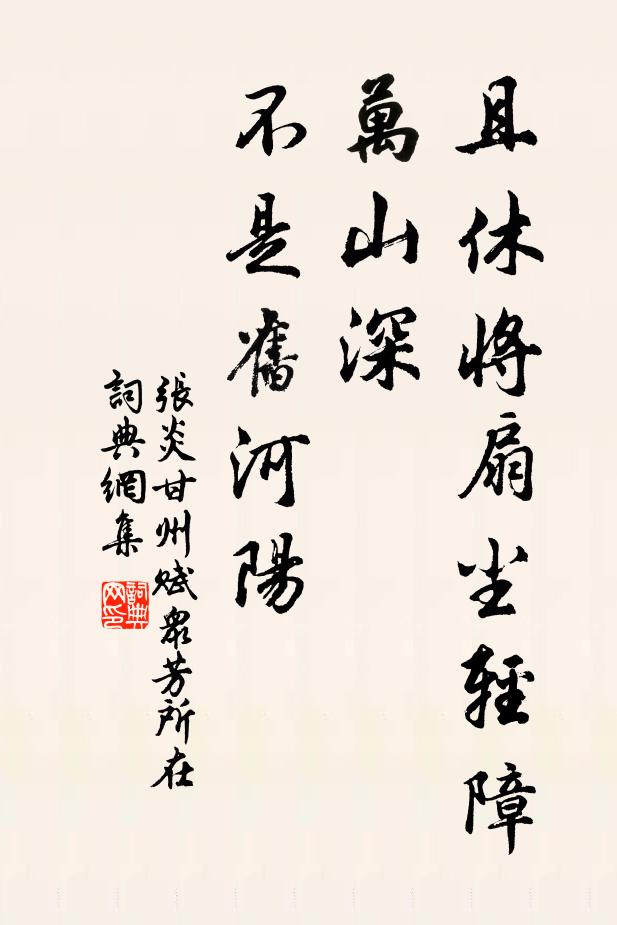 且休將扇尘輕障
萬山深
不是舊河陽
張炎甘州賦衆芳所在
詞典網集
詞典网印